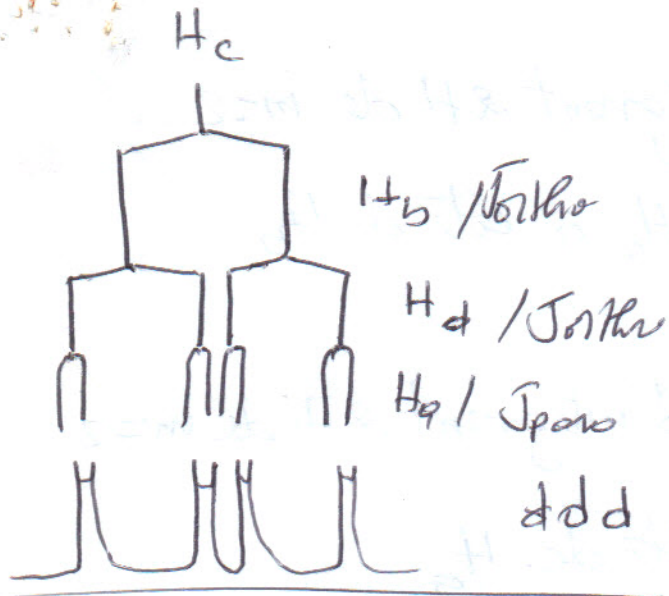 Hc
Hb / Jortho
Hd / Jortho
Ha / Jpara
ddd